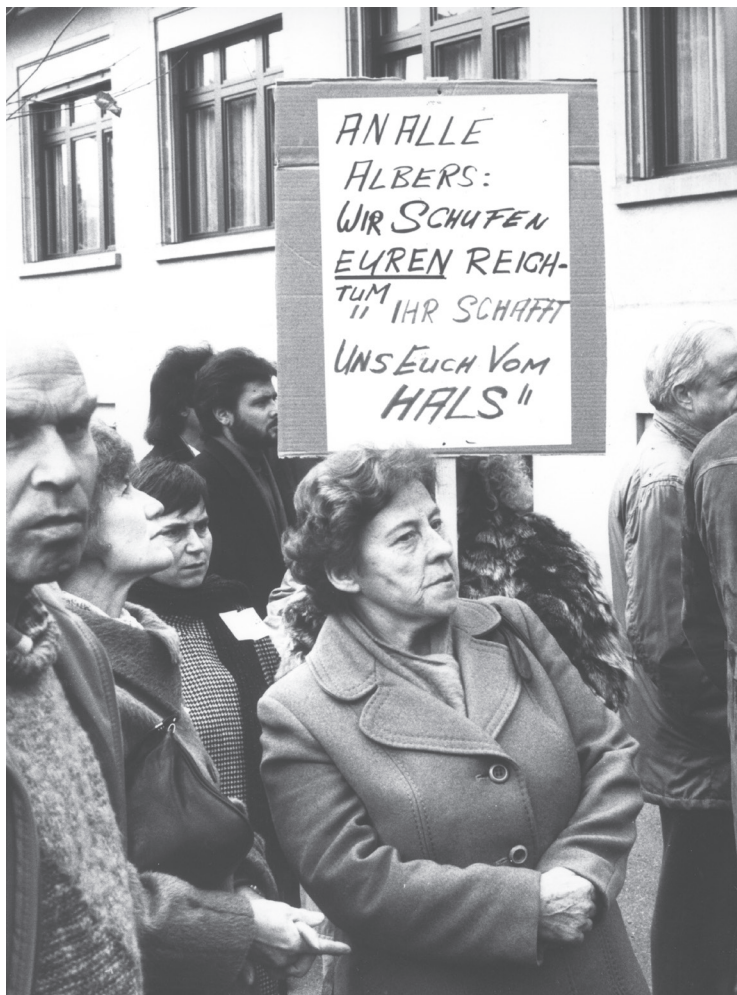 AN ALLE
ALBERS:
WIR SCHUFEN
EUREN REICH-
TUM
" IHR SCHAFFT
UNS EUCH VOM
HALS"